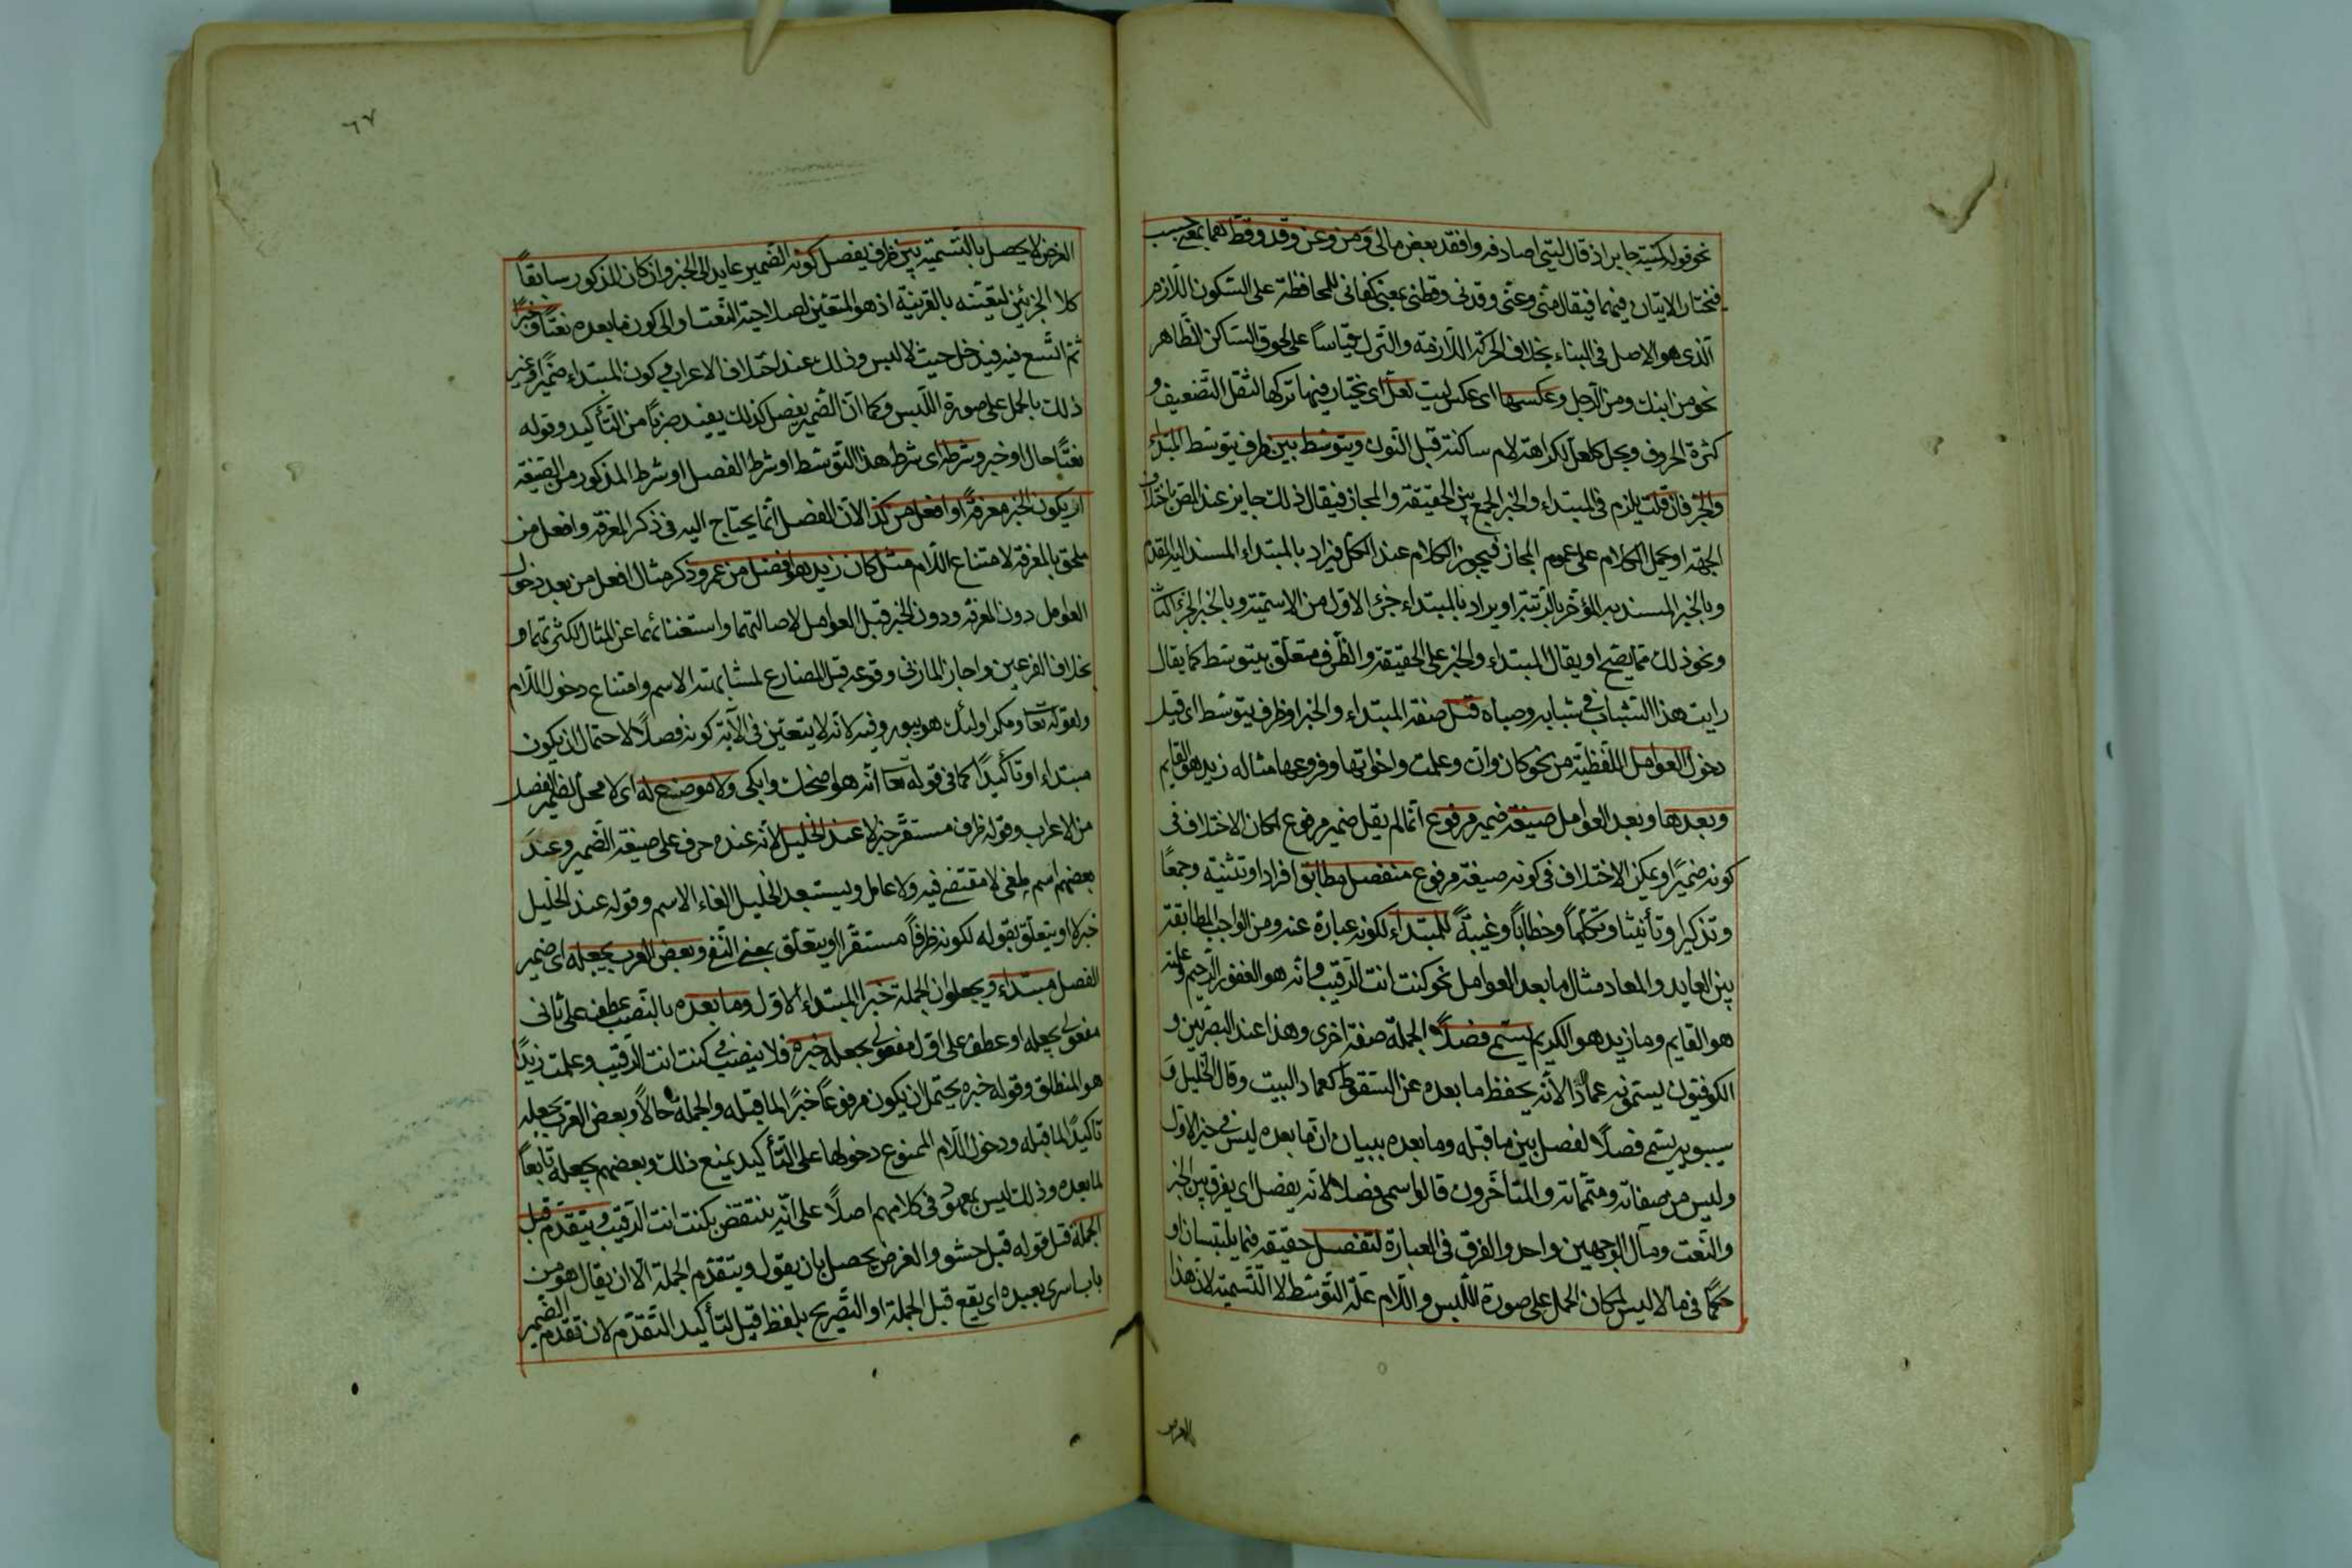 نحو قوله كمنية جابر اذ قال ليتي اصادفه وافقد بعض مالي ومن وعن وقد وقط هما بمعنى حسب
فيختار الاتيان فيهما فيقال مني وعني وقدني وقطني بمعنى كفاني للمحافظة على السكون اللازم
الذي هو الاصل في البناء بخلاف الحركة اللازمة والترك قياسا على لحوق الساكن الظاهر
نحو من ابنك ومن الرجل وعكسها اي عكس ليت لعل اي يختار فيها تركها لثقل التضعيف و
كثرة الحروف وبجل كلعل لكراهة لام ساكنة قبل النون ويتوسط بين ظرف يتوسط المبتداء
والخبر فان قلت يلزم في المبتداء والخبر الجمع بين الحقيقة والمجاز فيقال ذلك جايز عند المص باختلاف
الجهة او يحمل الكلام على عموم المجاز فيجوز الكلام عند الكل فيراد بالمبتداء المسند اليه المقدم
وبالخبر المسند به المؤخر بالرتبة او يراد بالمبتداء جزء الاول من الاسمية وبالخبر الجزء الثا
ونحو ذلك مما يصح او يقال المبتداء والخبر على الحقيقة والظرف متعلق بيتوسط كما يقال
رايت هذا الشباب في شبابه وصباه قبل صفة المبتداء والخبر او ظرف يتوسط اي قبل
دخول العوامل اللفظية من نحو كان وان وعلمت واخواتها وفروعها مثاله زيد هو القايم
وبعدها وبعد العوامل صيغة ضمير مرفوع انما لم يقل ضمير مرفوع لمكان الاختلاف في
كونه ضميرا ويمكن الاختلاف في كونه صيغة مرفوع منفصل مطابق افرادا وتثنية وجمعا
وتذكيرا وتأنيثا وتكلما وخطابا وغيبة للمبتداء لكونه عبارة عنه ومن الواجب المطابقة
بين العايد والمعاد مثال ما بعد العوامل نحو كنت انت الرقيب وانه هو الغفور الرحيم وعلمته
هو القايم وما زيد هو الكريم يسمى فصلا الجملة صفة اخرى وهذا عند البصريين و
الكوفيون يسمونه عمادا لانه يحفظ ما بعده عن السقوط كعماد البيت وقال الخليل و
سيبويه يسمى فصلا لفصل بين ما قبله وما بعده ببيان ان ما بعده ليس في حيز الاول
وليس من صفاته ومتمماته والمتأخرون قالوا سمى فصلا لانه يفصل اي يفرق بين الخبر
والنعت ومآل الوجهين واحد والفرق في العبارة لتفصل حقيقة فيما يلتبسان او
حكما في ما لا لبس لمكان الحمل على صورة اللبس واللام علة التوسط لا التسمية لان هذا
الغرض
٦٧
الغرض لا يحصل بالتسمية بين ظرف يفصل كونه الضمير عايد الى الخبر وان كان المذكور سابقا
كلا الجزئين لتعينه بالقرينة اذ هو المتعين لصلاحية النعت او الى كون ما بعده نعتا وخبرا
ثم اتسع فيه فيدخل حيث لا لبس وذلك عند اختلاف الاعراب وكون المبتداء ضميرا وغير
ذلك بالحمل على صورة اللبس وكما ان الضمير يفصل كذلك يفيد ضربا من التأكيد وقوله
نعتا حال او خبر وشرطه اي شرط هذا التوسط او شرط الفصل او شرط المذكور من الصيغة
ان يكون الخبر معرفة او افعل من كذا لان الفصل انما يحتاج اليه في ذكر المعرفة وافعل من
ملحق بالمعرفة لامتناع اللام مثل كان زيد هو افضل من عمرو ذكر مثال افعل من بعد دخول
العوامل دون المعرفة ودون الخبر قبل العوامل لاصالتهما واستغنائهما عن المثال لكثرتهما و
بخلاف الفرعين واجاز المازني وقوعه قبل المضارع لمشابهته الاسم وامتناع دخول اللام
ولقوله تعا ومكر اولئك هو يبور وفيه لانه لا يتعين في الآية كونه فصلا لاحتمال ان يكون
مبتداء او تأكيدا كما في قوله تعا انه هو اضحك وابكى ولا موضع له اي لا محل لضمير الفصل
من الاعراب وقوله ظرف مستقر خبر لا عند الخليل لانه عنده حرف على صيغة الضمير وعند
بعضهم اسم ملغى لا مقتضى فيه ولا عامل ويستبعد الخليل الغاء الاسم وقوله عند الخليل
خبر لا او يتعلق بقوله لكونه ظرفا مستقرا او يتعلق بمعنى النفي وبعض العرب يجعله اي ضمير
الفصل مبتداء ويجعلون الجملة خبرا لمبتداء الاول وما بعده بالنصب عطف على ثاني
مفعولي يجعله او عطف على اول مفعولي يجعله خبره فلا ينصب في كنت انت الرقيب وعلمت زيدا
هو المنطلق وقوله خبره يحتمل ان يكون مرفوعا خبرا لما قبله والجملة حالا وبعض العرب يجعله
تأكيدا لما قبله ودخول اللام الممنوع دخولها على التأكيد يمنع ذلك وبعضهم يجعله تابعا
لما بعده وذلك ليس بمعهود في كلامهم اصلا على انه ينتقض بكنت انت الرقيب ويتقدم قبل
الجملة قيل قوله قبل حشو والغرض يحصل بان يقول ويتقدم الجملة الا ان يقال هو من
باب اسرى بعبده اي يقع قبل الجملة او التصريح بلفظ قبل لتأكيد التقدم لان تقدم الضمير